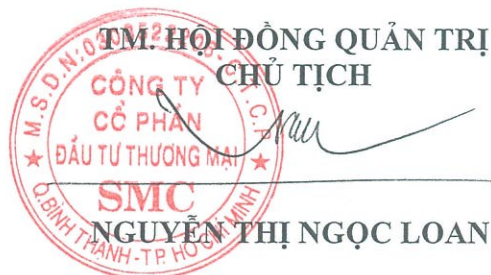 TM. HỘI ĐỒNG QUẢN TRỊ
CHỦ TỊCH
CÔNG TY
CỔ PHẦN
ĐẦU TƯ THƯƠNG MẠI
SMC
Q.BÌNH THẠNH-T.P. HỒ CHÍ MINH
NGUYỄN THỊ NGỌC LOAN